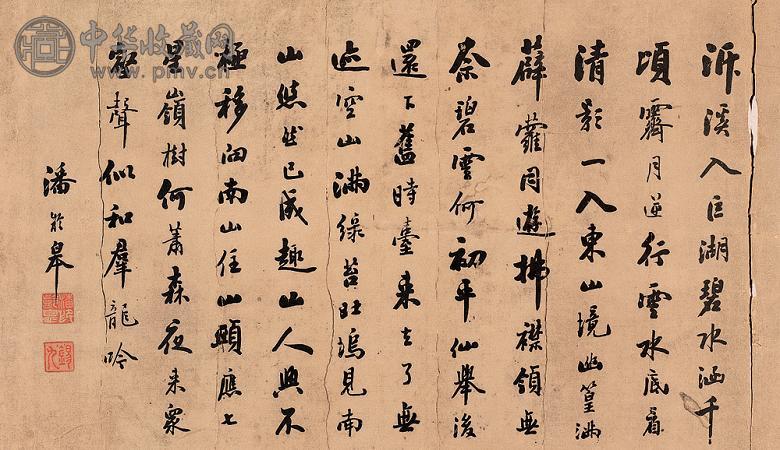 中华收藏网
www.pmv.cn
泝溪入巨湖碧水涵千
頃霽月逆行雲水底看
清影一入東山境幽篁滿
薜蘿同遊拂襟領無
奈碧雲何初平仙舉後
還下舊時臺來去了無
迹空山滿綠苔在塢見南
山悠然已成趣山人興不
極移向南山住山頭應七
星嶺樹何蕭森夜來衆
壑聲似和羣龍吟
潘齡皋